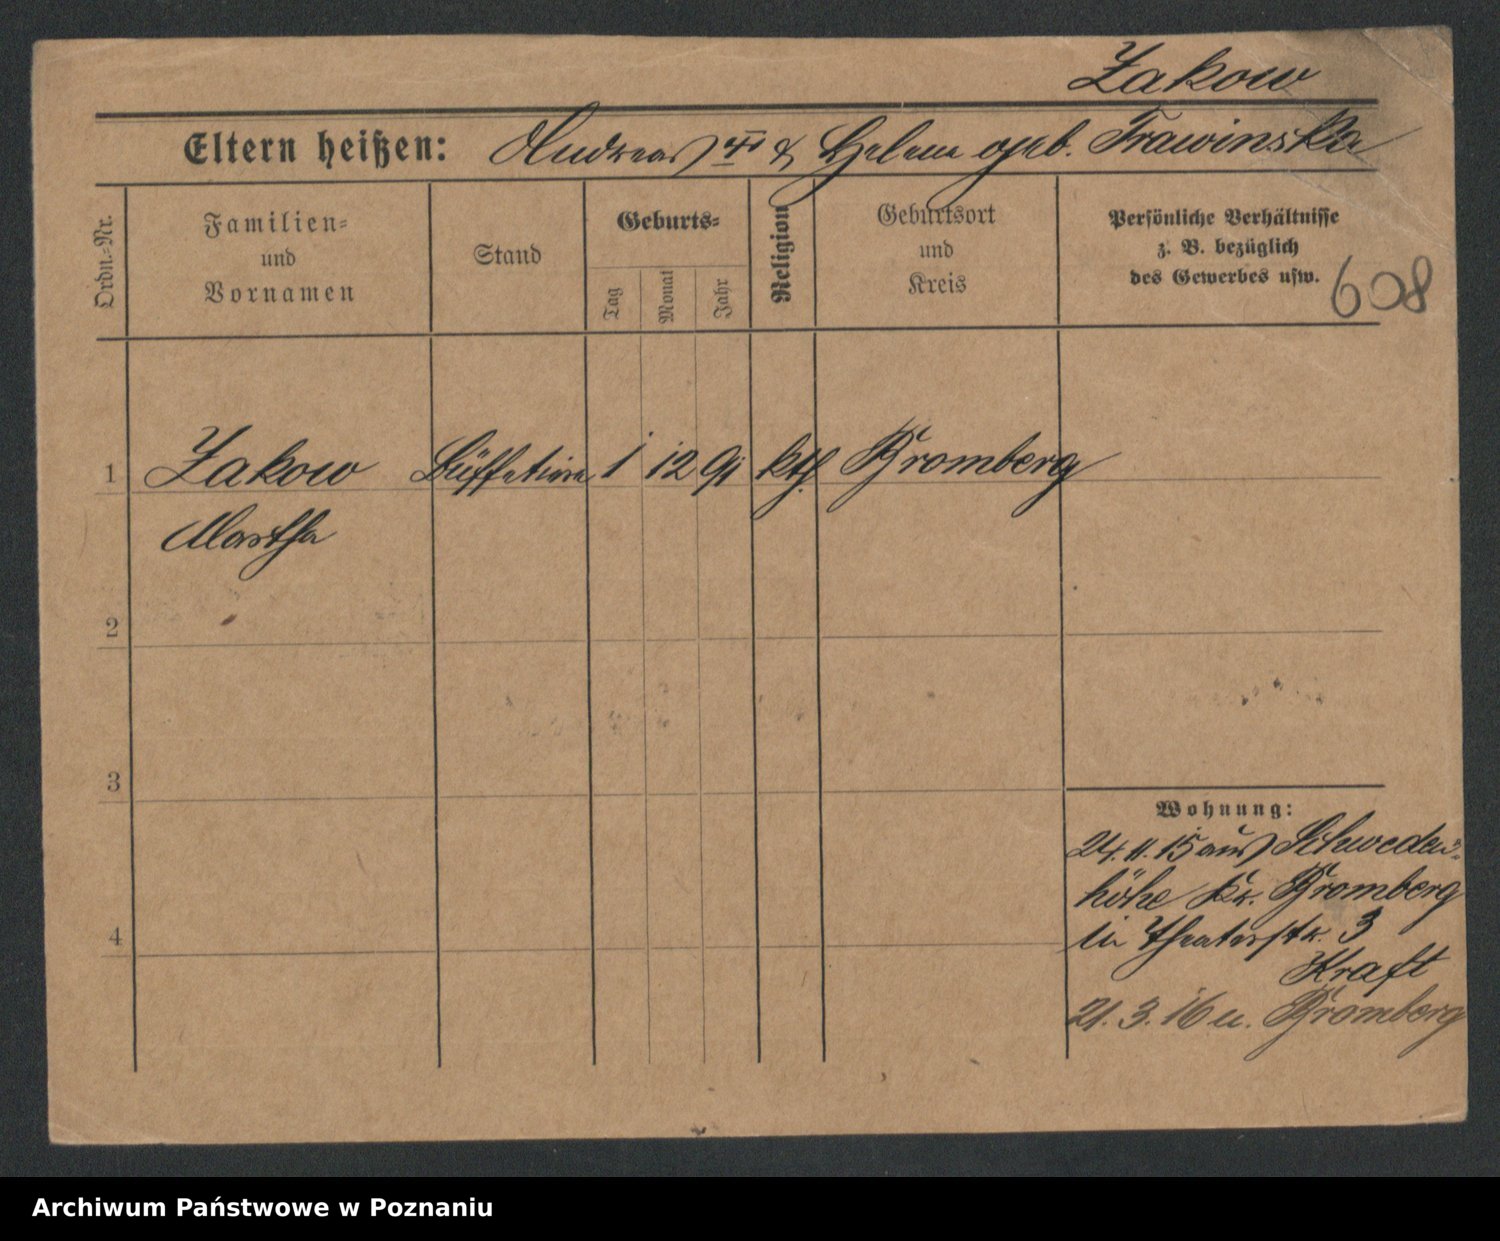 Zakow
Eltern heißen: Andreas & Helene geb. Trawinska
Ordn.-Nr.
Familien-
und
Vornamen
Stand
Geburts-
Tag
Monat
Jahr
Religion
Geburtsort
und
Kreis
Persönliche Verhältnisse
z. B. bezüglich
des Gewerbes usw.
608
1 Zakow Büffetiere 1 12 91 kth Bromberg
Martha
2
3
4
Wohnung:
24.11.15 aus Schweden-
höhe Kr. Bromberg
in Theaterstr. 3
Kraft
21.3.16 n. Bromberg
Archiwum Państwowe w Poznaniu